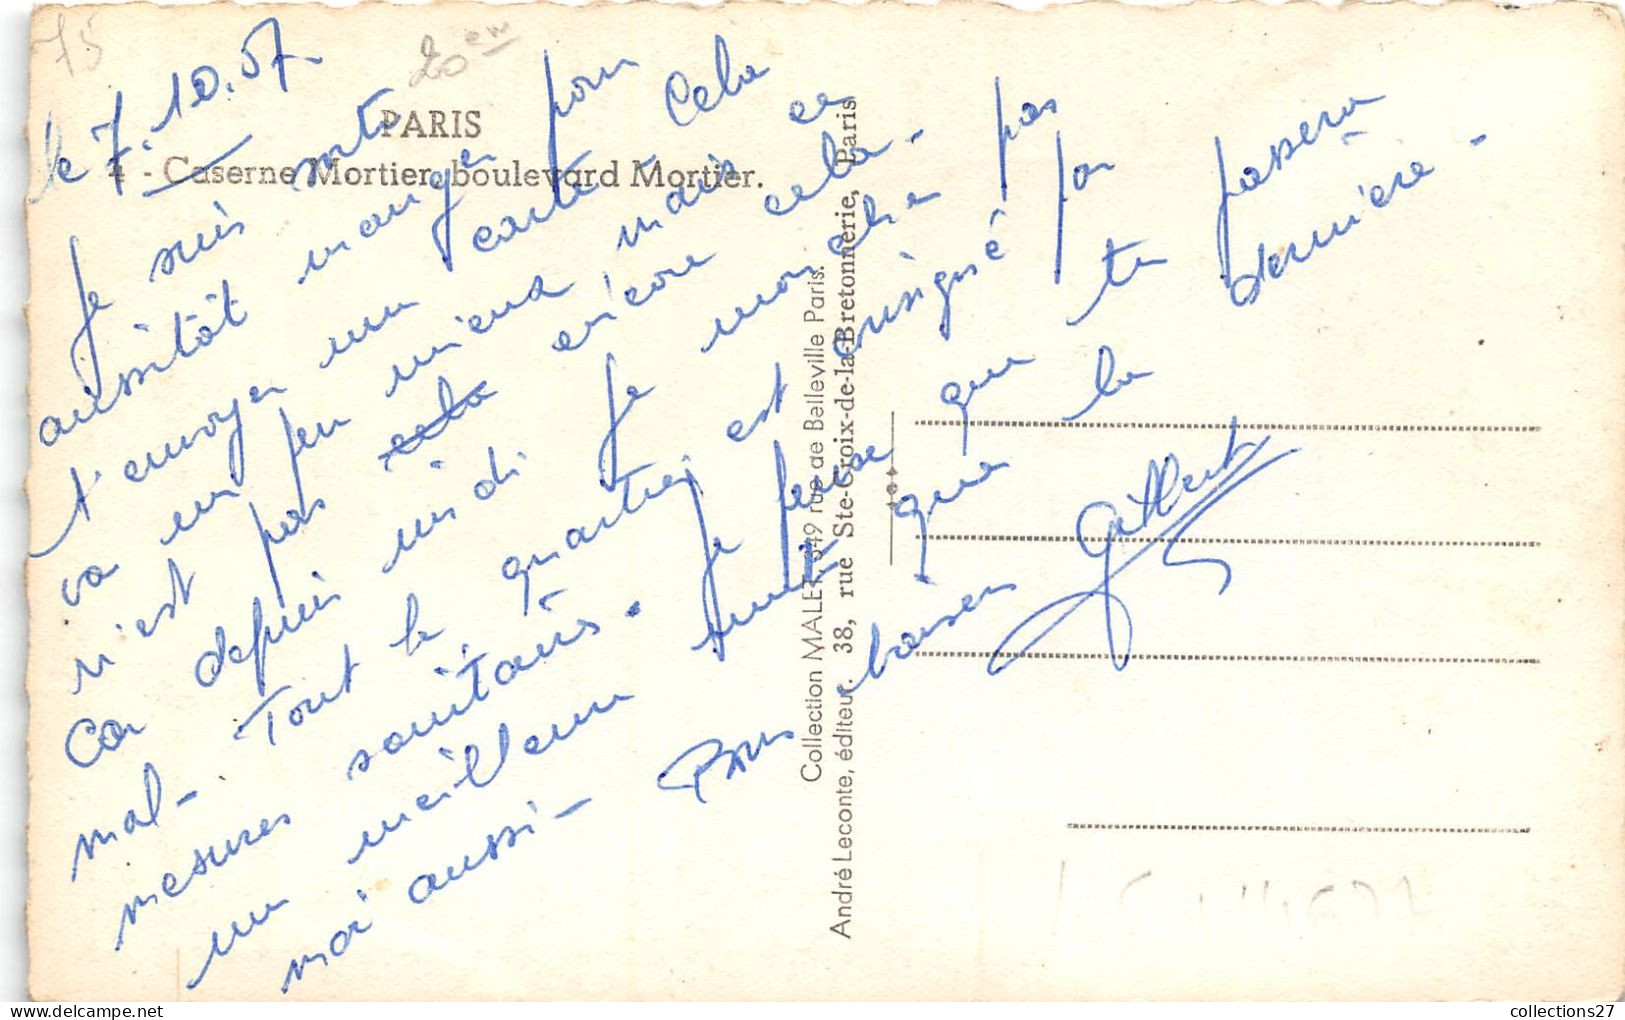 75
20em
PARIS
4 - Caserne Mortier, boulevard Mortier.
le 7.10.57
Je suis sorti
aussitôt manger pour
t'envoyer une carte - Cela
va un peu mieux mais ce
n'est pas cela encore cela -
Car depuis midi je mange pas
mal - Tout le quartier est consigné par
mesures sanitaires. Je pense que tu passera
une meilleure nuit que la dernière -
moi aussi - Bons baisers
Gilbert
Collection MALET, 349 rue de Belleville Paris.
André Leconte, éditeur. 38, rue Ste-Croix-de-la-Bretonnerie, Paris
collections27